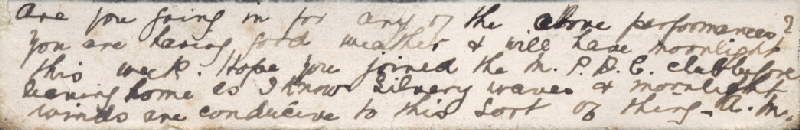 Are you going in for any of the above performances?
You are having good weather & will have moonlight
this week. Hope you joined the M. P. D. C. club before
leaving home as I know silvery waves & moonlight
winds are conducive to this sort of thing - A. M.